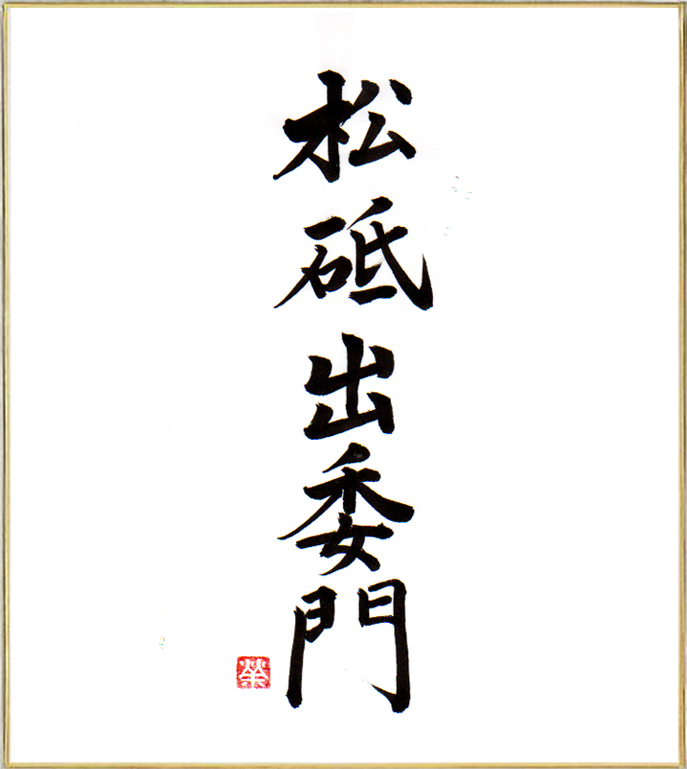 松砥出委門
榮